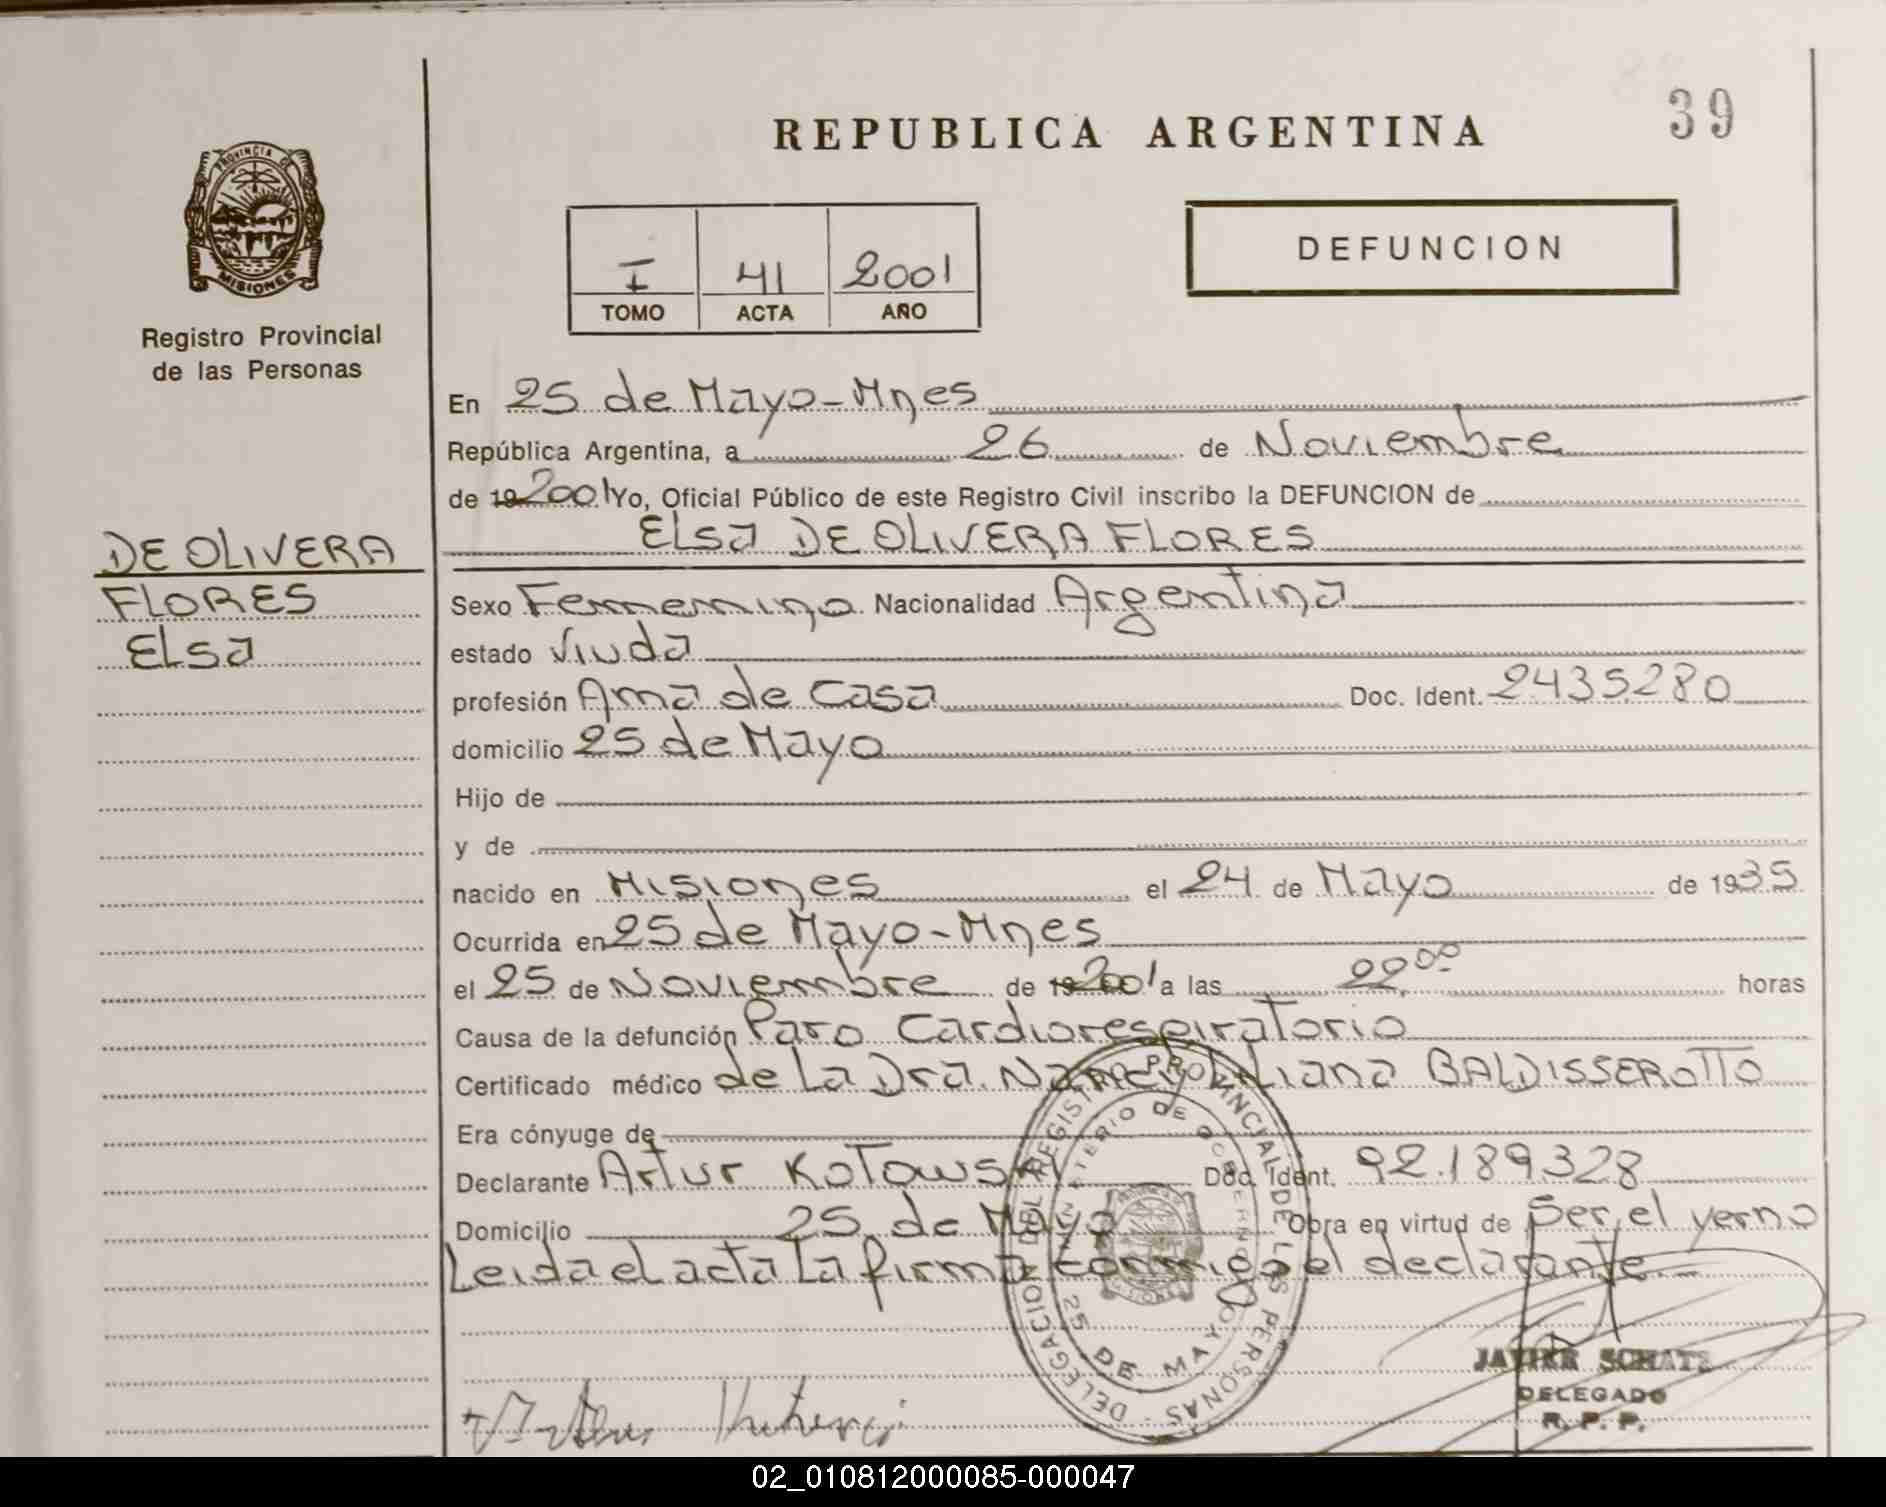 39
REPUBLICA ARGENTINA
PROVINCIA DE
MISIONES
Registro Provincial
de las Personas
I 41 2001
TOMO ACTA AÑO
DEFUNCION
DE OLIVERA
FLORES
Elsa
En 25 de Mayo-Mnes
República Argentina, a 26 de Noviembre
de 19 2001 Yo, Oficial Público de este Registro Civil inscribo la DEFUNCION de
Elsa DE OLIVERA FLORES
Sexo Femenino Nacionalidad Argentina
estado Viuda
profesión Ama de Casa Doc. Ident. 2435280
domicilio 25 de Mayo
Hijo de
y de
nacido en Misiones el 24 de Mayo de 1935
Ocurrida en 25 de Mayo-Mnes
el 25 de Noviembre de 19 2001 a las 22.00 horas
Causa de la defunción Paro Cardiorespiratorio
Certificado médico de La Dra. Liliana BALDISSEROTTO
Era cónyuge de
Declarante Artur Kotowski Doc. Ident. 92.189328
Domicilio 25 de Mayo Obra en virtud de Ser el yerno
Leida el acta La firma conmigo el declarante.-
DELEGACION DEL REGISTRO PROVINCIAL DE LAS PERSONAS
MINISTERIO DE GOBIERNO
25 DE MAYO
JAVIER SCHATZ
DELEGADO
R. P. P.
02_010812000085-000047